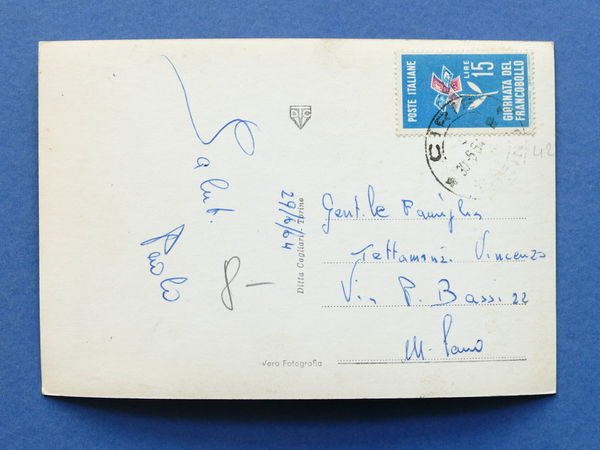 POSTE ITALIANE
LIRE 15
GIORNATA DEL
FRANCOBOLLO
Saluti
Paolo
29/6/64
8-
Ditta Cagliari - Torino
Gentile Famiglia
Tettamanzi Vincenzo
Via P. Bassi 22
Milano
Vera Fotografia
42